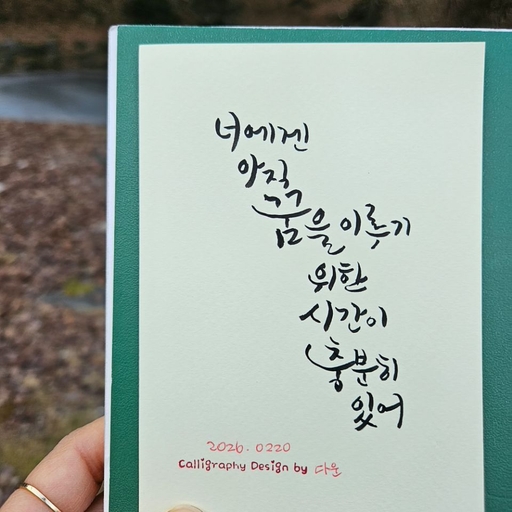 너에겐
아직
꿈을 이룻기
위한
시간이
충분히
있어
2026. 0220
Calligraphy Design by 다운